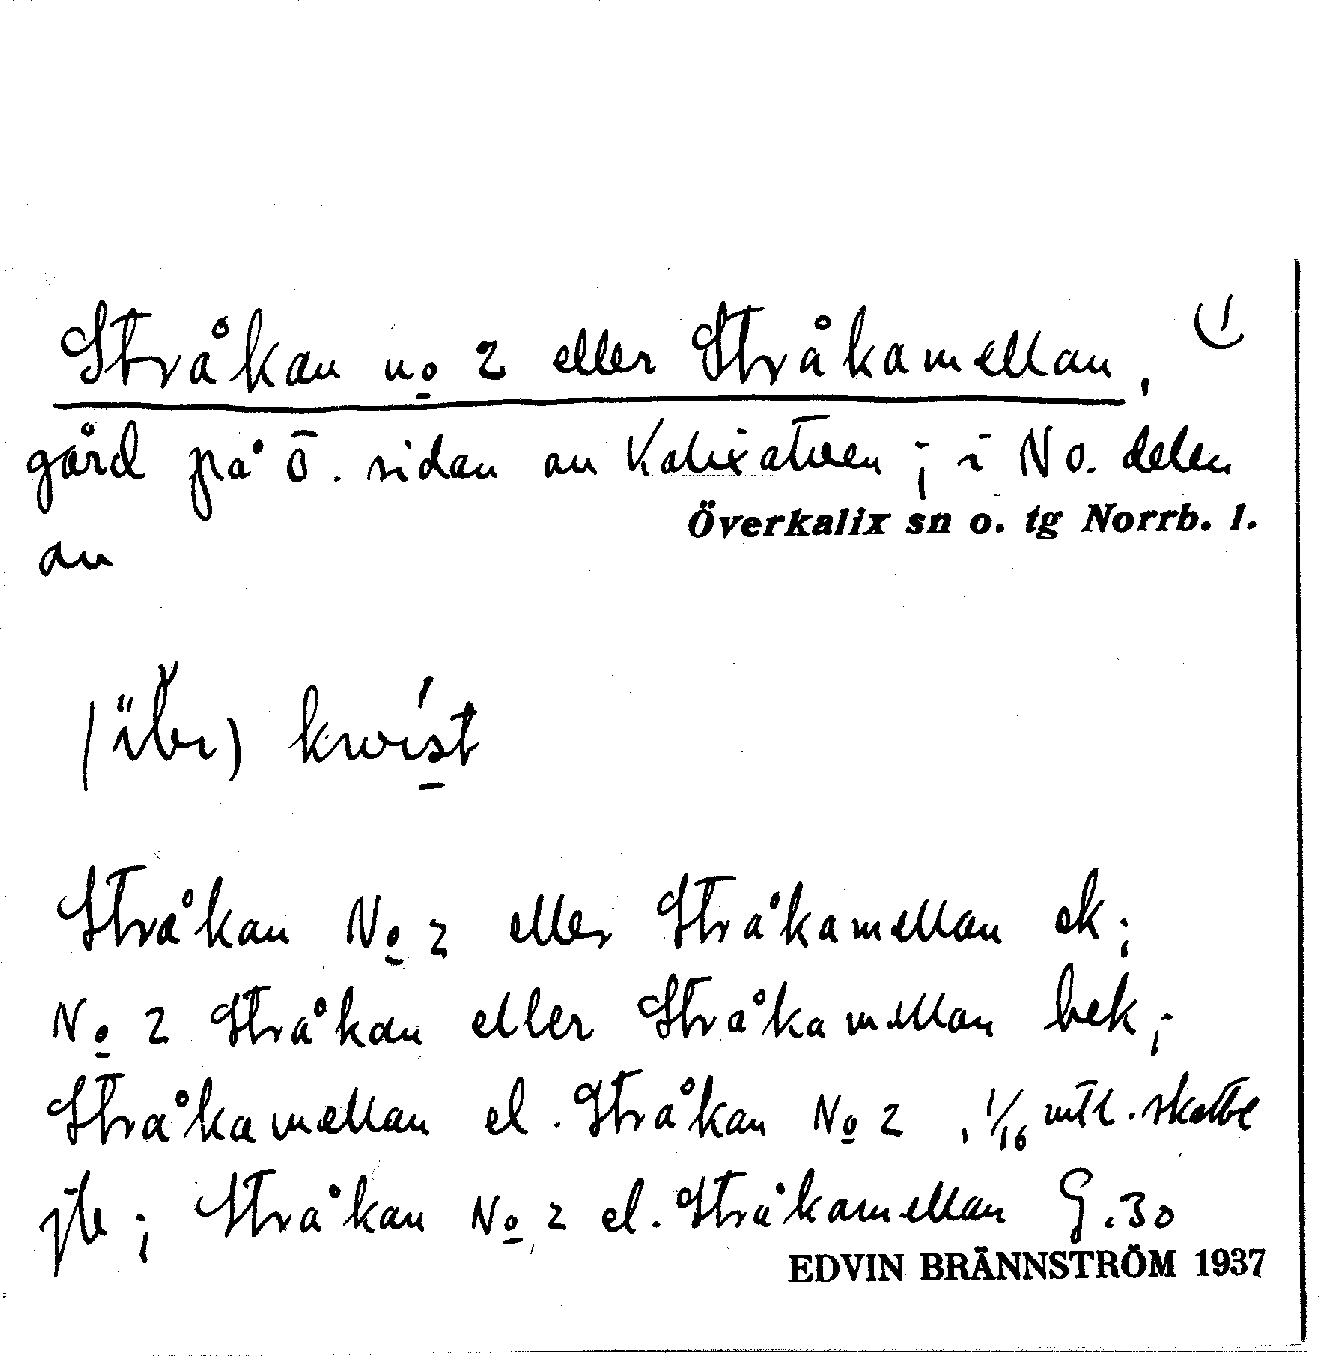 Stråkan no 2 eller Stråkamellan,
gård på ö. sidan av Kalixälven; i No. delen
Överkalix sn o. tg Norrb. l.
av
kwist
Stråkan No 2 eller Stråkamellan ek;
No 2 Stråkan eller Stråkamellan bek;
Stråkamellan el. Stråkan No 2, 1/16 mtl. skatte
jb; Stråkan No 2 el. Stråkamellan G.30
EDVIN BRÄNNSTRÖM 1937